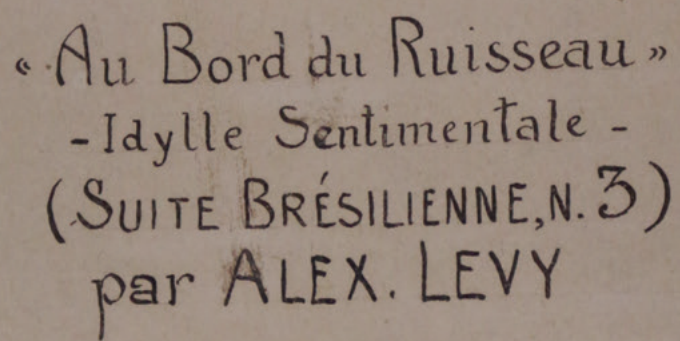 « Au Bord du Ruisseau »
- Idylle Sentimentale -
(SUITE BRÉSILIENNE, N. 3)
par ALEX. LEVY